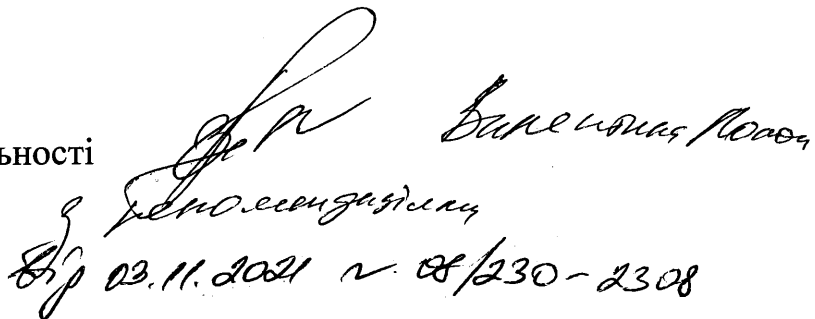 ьності Валентина
з рекомендаціями
від 03.11.2021 № 08/230-2308